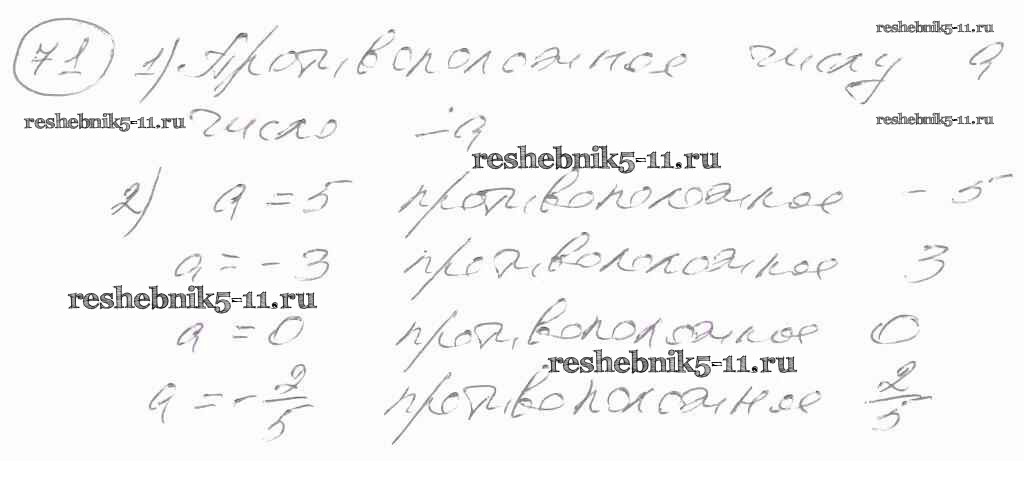 reshebnik5-11.ru
71 1) Противоположное числу a
reshebnik5-11.ru число -a reshebnik5-11.ru
reshebnik5-11.ru
2) a = 5 противоположное - 5
a = - 3 противоположное 3
reshebnik5-11.ru
a = 0 противоположное 0
reshebnik5-11.ru
a = - 2/5 противоположное 2/5